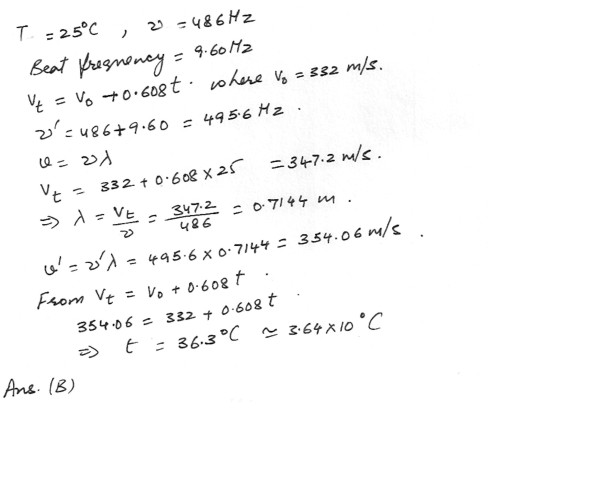 T = 25°C , ν = 486Hz
Beat frequency = 9.60Hz
Vt = V0 + 0.608t . where V0 = 332 m/s.
ν' = 486+9.60 = 495.6 Hz .
v = νλ
Vt = 332 + 0.608 × 25 = 347.2 m/s .
⇒ λ = Vt/ν = 347.2/486 = 0.7144 m .
v' = ν'λ = 495.6 × 0.7144 = 354.06 m/s .
From Vt = V0 + 0.608t .
354.06 = 332 + 0.608t .
⇒ t = 36.3°C ≃ 3.64×10°C
Ans. (B)